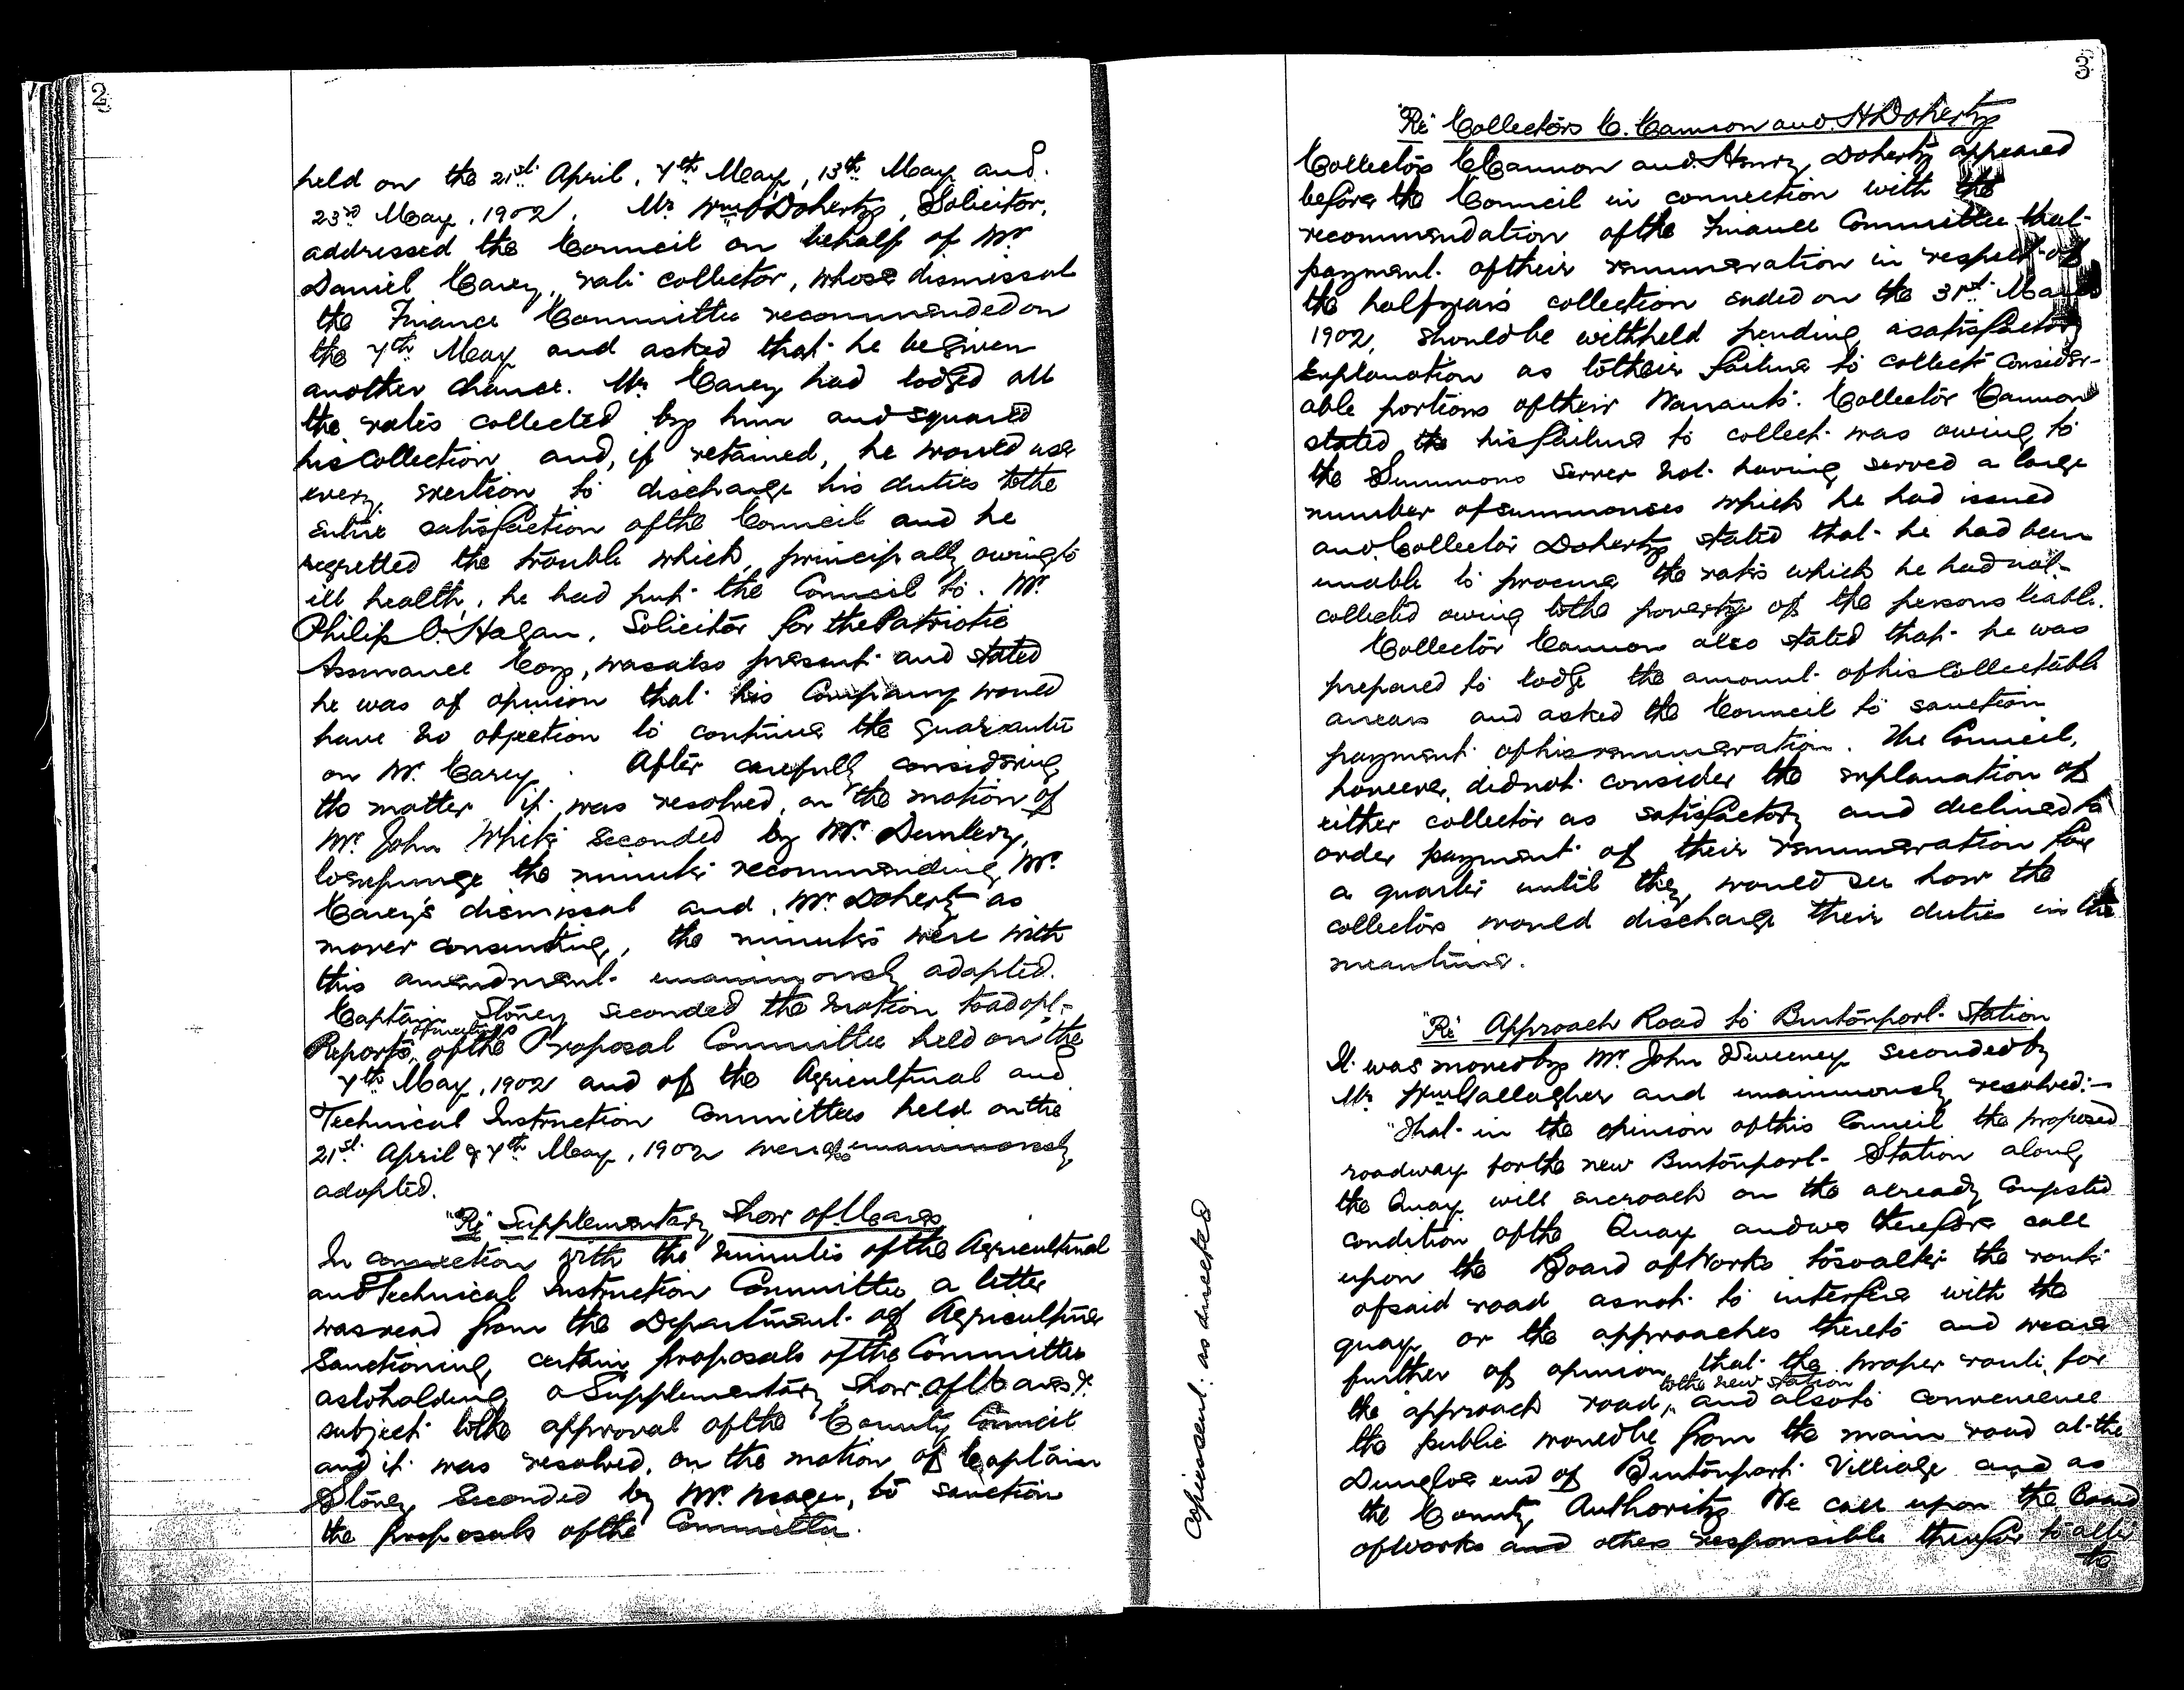 2
held on the 21st April, 7th May, 13th May and
23rd May, 1902. Mr Wm O'Doherty, Solicitor,
addressed the Council on behalf of Mr
Daniel Carey, rate collector, whose dismissal
the Finance Committee recommended on
the 7th May and asked that he be given
another chance. Mr Carey had lodged all
the rates collected by him and squared
his collection and, if retained, he would use
every exertion to discharge his duties to the
entire satisfaction of the Council and he
regretted the trouble which, principally owing to
ill health, he had put the Council to. Mr
Philip O'Hagan, Solicitor for the Patriotic
Assurance Coy, was also present and stated
he was of opinion that his Company would
have no objection to continue the guarantee
on Mr. Carey. After carefully considering
the matter it was resolved, on the motion of
Mr. John White seconded by Mr. Dunlevy,
to expunge the minute recommending Mr.
Carey's dismissal and, Mr. Doherty as
mover consenting, the minutes were with
this amendment unanimously adopted.
Captain Stoney seconded the motion to adopt.
Reports of meetings of the Proposal Committee held on the
7th May, 1902 and of the Agricultural and
Technical Instruction Committees held on the
21st April & 7th May, 1902 were also unanimously
adopted.
"Re" Supplementary Show of Mares
In connection with the minutes of the Agricultural
and Technical Instruction Committee a letter
was read from the Department of Agriculture
sanctioning certain proposals of the Committee
as to holding a Supplementary Show of Mares &c
subject to the approval of the County Council
and it was resolved, on the motion of Captain
Stoney seconded by Mr. to sanction
the proposals of the Committee.
3
"Re" Collectors C. Cannon and H Doherty
Collectors C Cannon and Henry Doherty appeared
before the Council in connection with the
recommendation of the Finance Committee that
payment of their remuneration in respect of
the halfyear's collection ended on the 31st March
1902, should be withheld pending a satisfactory
explanation as to their failure to collect consider-
able portions of their Warrants. Collector Cannon
stated the his failure to collect was owing to
the Summons Server not having served a large
number of summonses which he had issued
and Collector Doherty stated that he had been
unable to procure the rates which he had not
collected owing to the poverty of the persons liable.
Collector Cannon also stated that he was
prepared to lodge the amount of his Collectable
arrears and asked the Council to sanction
payment of his remuneration. The Council,
however, did not consider the explanation of
either collector as satisfactory and declined to
order payment of their remuneration for
a quarter until they would see how the
collectors would discharge their duties in the
meantime.
"Re" Approach Road to Burtonport Station
It was moved by Mr. John Sweeney seconded by
Mr Wm Gallagher and unanimously resolved:—
"That in the opinion of this Council the proposed
roadway for the new Burtonport Station along
the Quay will encroach on the already Congested
condition of the Quay and we therefore call
upon the Board of Works to so alter the route
of said road as not to interfere with the
quay or the approaches thereto and we are
further of opinion that the proper route for
the approach road to the new station, and also to convenience
the public would be from the main road at the
Dungloe end of Burtonport Village and as
the County Authority We call upon the Board
of Works and others responsible therefor to alter
the
Copies sent: as directed